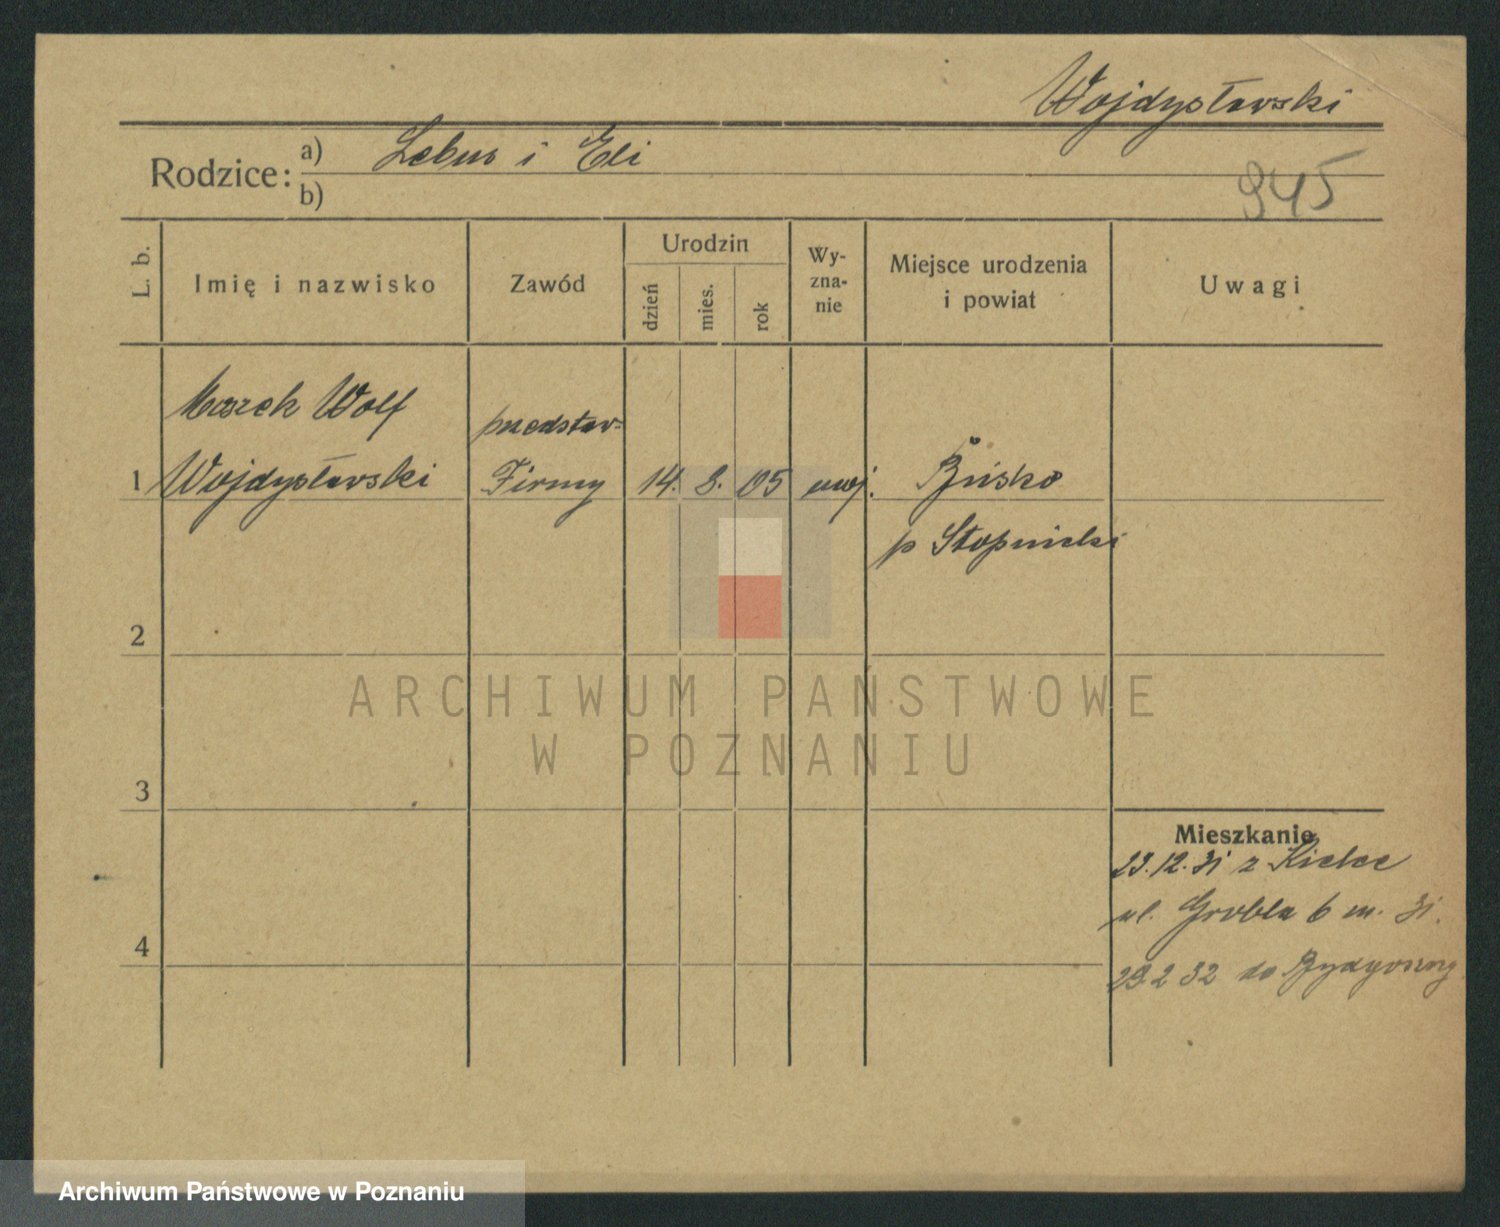 Wojdysławski
Rodzice: a) Lebus i Eli
b)
945
L. b.
Imię i nazwisko
Zawód
Urodzin
dzień
mies.
rok
Wy-
zna-
nie
Miejsce urodzenia
i powiat
Uwagi
Maszek Wolf
przedstaw-
1 Wojdysławski Firmy 14. 8. 05 mojż. Busko
p Stopnicki
2
ARCHIWUM PAŃSTWOWE
W POZNANIU
3
Mieszkanie
23.12.31 z Kielce
ul. Grobla 6 m. 31.
4
29.2 32 do Bydgoszczy
Archiwum Państwowe w Poznaniu